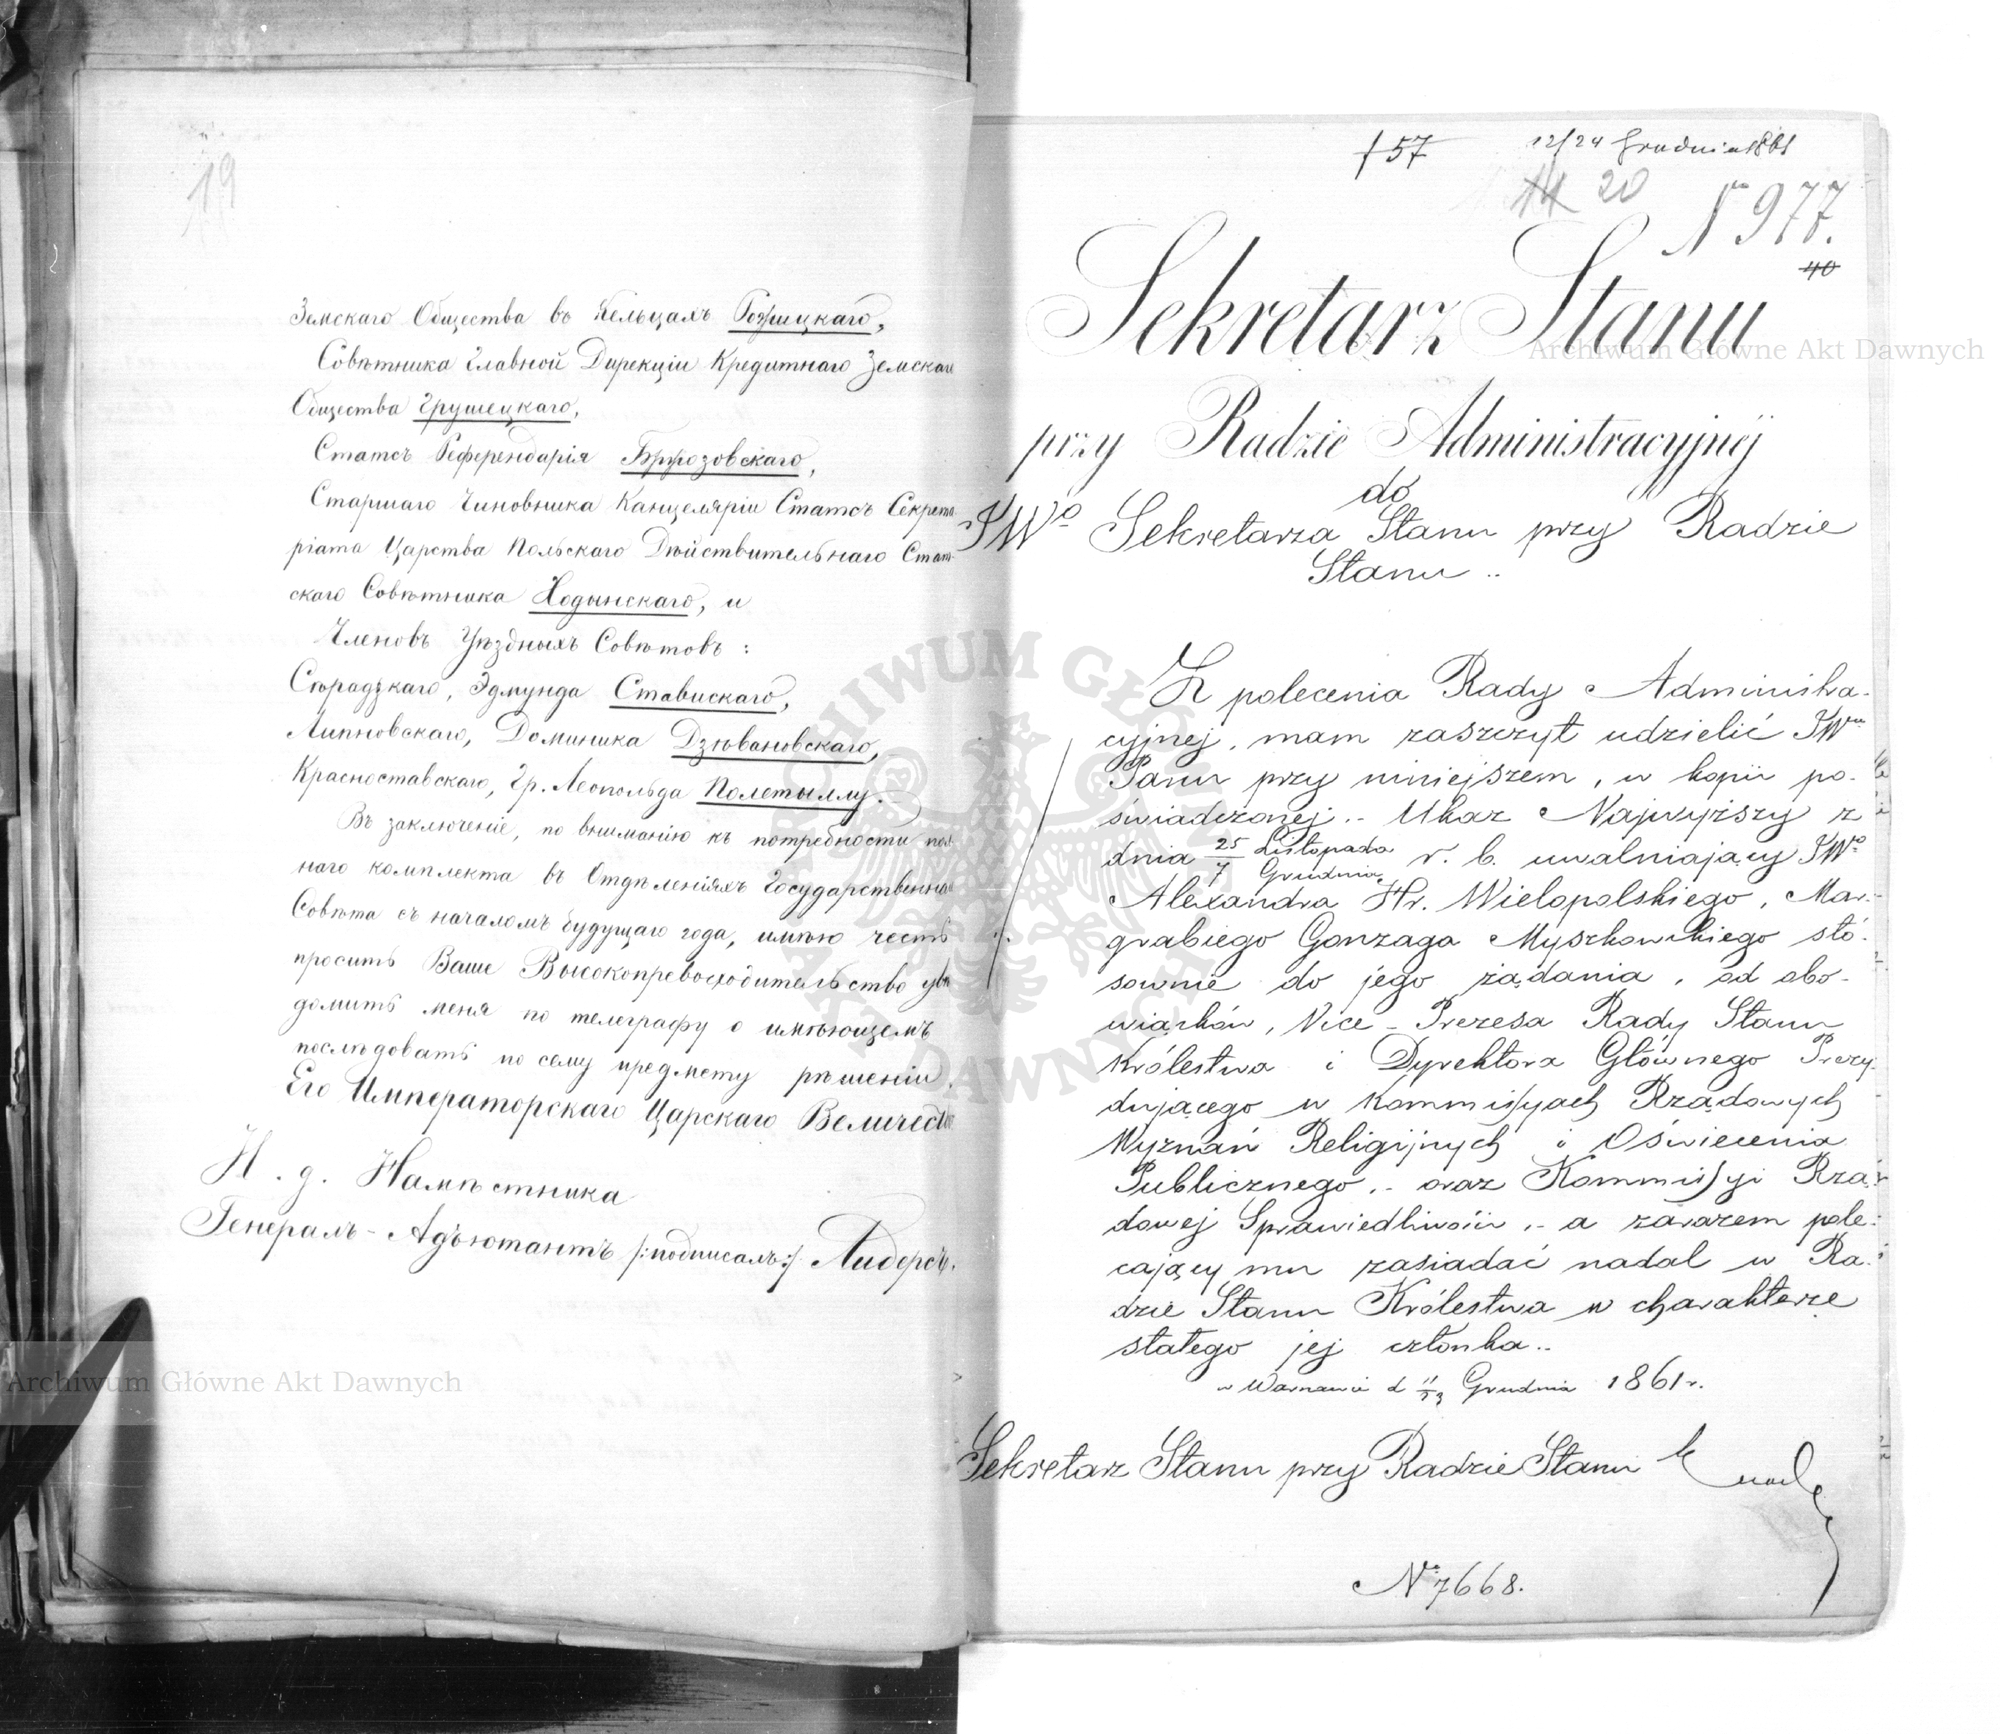 19
Земскаго Общества въ Кельцахъ Рожицкаго,
Совѣтника Главной Дирекціи Кредитнаго Земскаго
Общества Грушецкаго,
Статсъ Референдарія Бржозовскаго,
Старшаго Чиновника Канцеляріи Статсъ Секрета
ріата Царства Польскаго Дѣйствительнаго Стат-
скаго Совѣтника Ходынскаго, и
Членовъ Уѣздныхъ Совѣтовъ:
Сѣрадзкаго, Эдмунда Ставискаго,
Липновскаго, Доминика Дзѣвановскаго,
Красноставскаго, Гр. Леопольда Полетыллу.
Въ заключеніе, по вниманію къ потребности пол
наго комплекта въ Отдѣленіяхъ Государственнаго
Совѣта съ началомъ будущаго года, имѣю честь
просить Ваше Высокопревосходительство увѣ
домить меня по телеграфу о имѣющемъ
послѣдовать по сему предмету рѣшеніи
Его Императорскаго Царскаго Величества
И. д. Намѣстника
Генералъ-Адъютантъ /:подписалъ:/ Лидерсъ.
157
12/24 Grudnia 1861
14 20
N 977.
40
Sekretarz Stanu
przy Radzie Administracyjnéj
do
JWo Sekretarza Stanu przy Radzie
Stanu ..
Z polecenia Rady Administra-
cyjnej, mam zaszczyt udzielić JWu
Panu przy niniejszem, w kopii po-
świadczonej.- Ukaz Najwyższy z
dnia 25 Listopada / 7 Grudnia r. b. uwalniający JWo
Alexandra Hr. Wielopolskiego, Mar-
grabiego Gonzaga Myszkowskiego sto-
sownie do jego żądania, od obo-
wiązków, Vice-Prezesa Rady Stanu
Królestwa i Dyrektora Głównego Prezy-
dującego w Kommissyach Rządowych
Wyznań Religijnych i Oświecenia
Publicznego,- oraz Kommissyi Rzą-
dowej Sprawiedliwości,- a zarazem pole-
cający mu zasiadać nadal w Ra-
dzie Stanu Królestwa w charakterze
stałego jej członka..
w Warszawie d 11/23 Grudnia 1861 r.
Sekretarz Stanu przy Radzie Stanu
No 7668.
Archiwum Główne Akt Dawnych
Archiwum Główne Akt Dawnych
ARCHIWUM GŁÓWNE AKT DAWNYCH